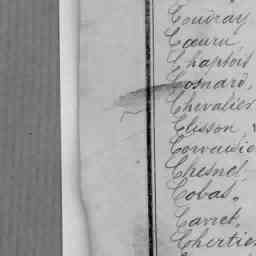 Coudray
Cœuru,
Chaptois
Cosnard,
Chevalier
Clisson,
Corvaisie
Chesnel
Cobas.
Carret.
Chertie